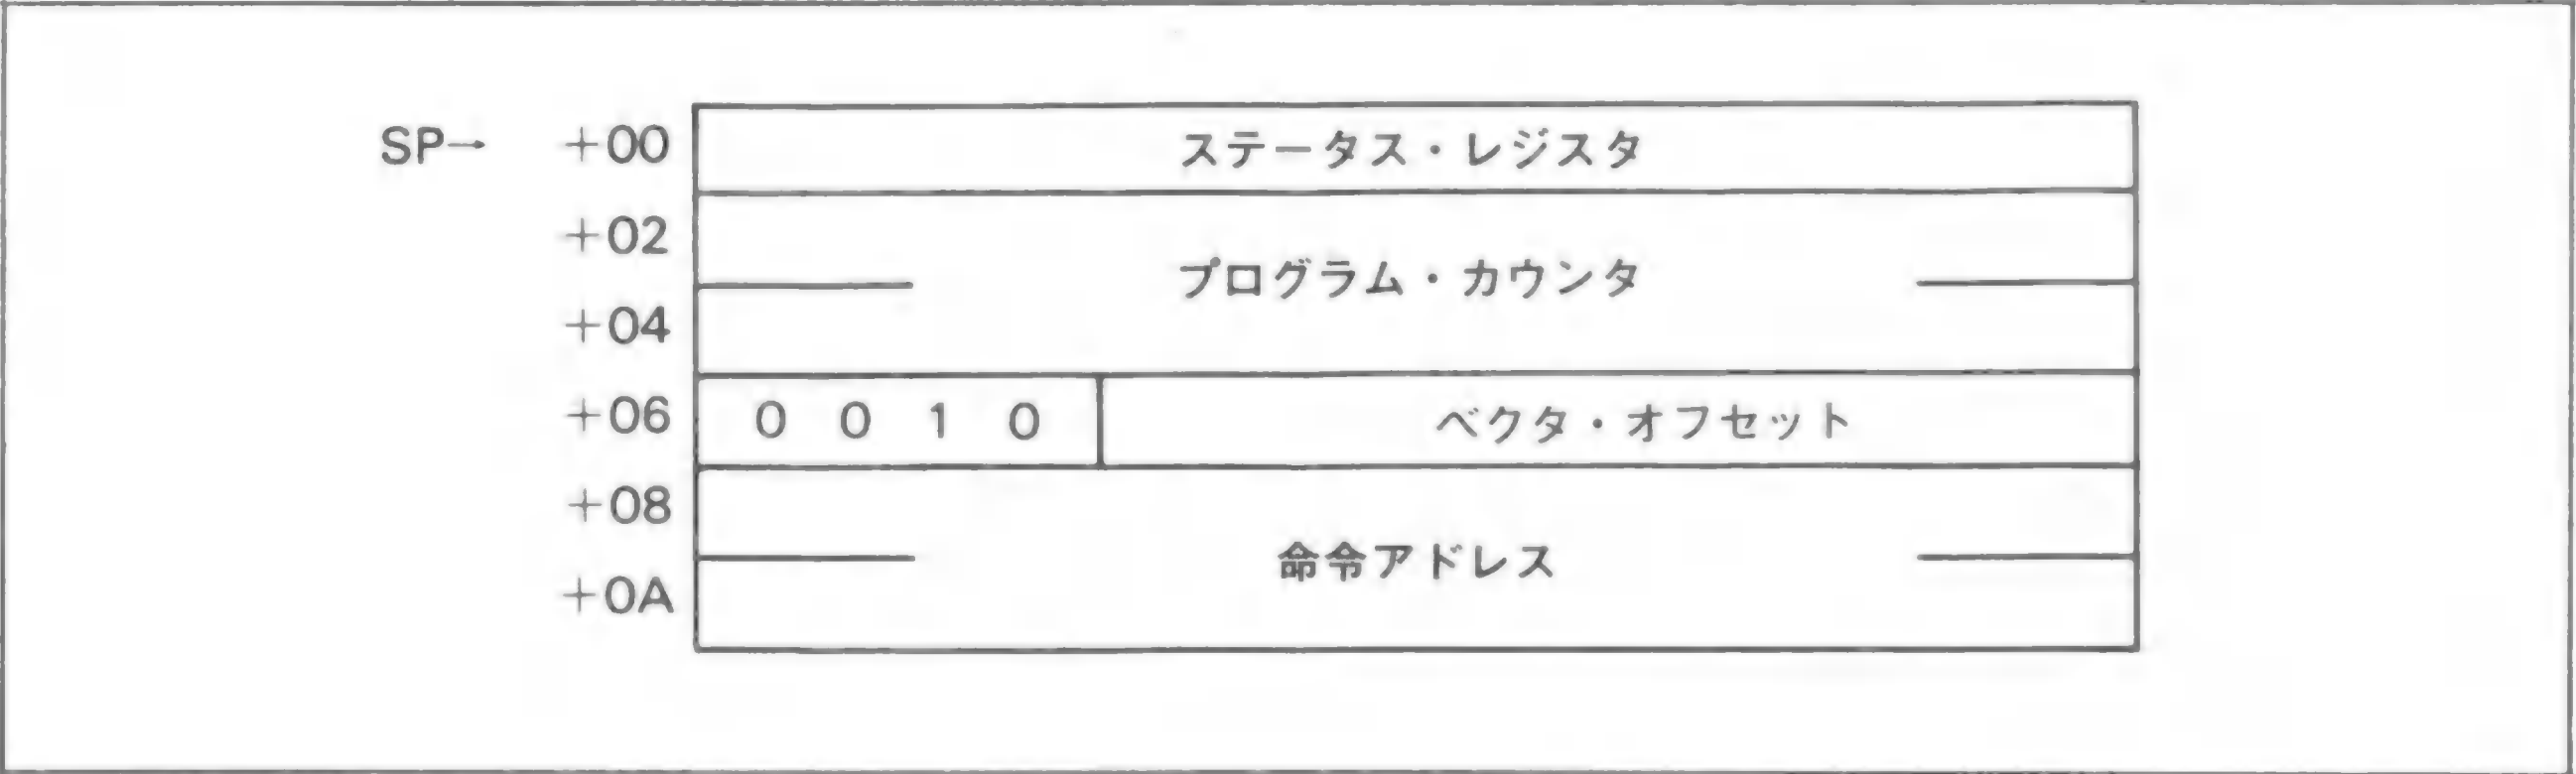 SP→ +00 ステータス・レジスタ
+02
プログラム・カウンタ
+04
+06 0 0 1 0 ベクタ・オフセット
+08
命令アドレス
+0A